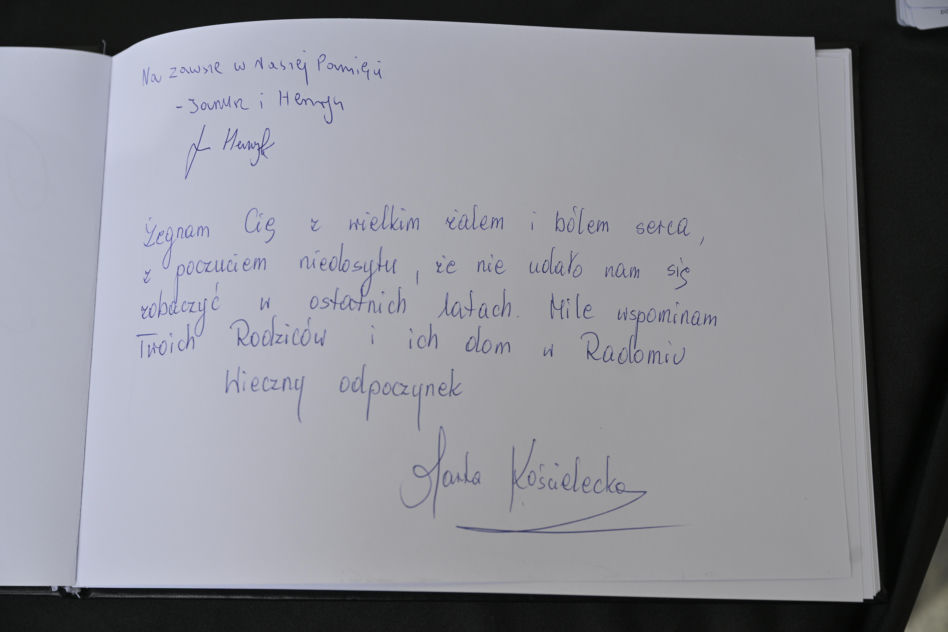 Na zawsze w Naszej Pamięci
- Janusz i Henryk
Henryk
Żegnam Cię z wielkim żalem i bólem serca,
z poczuciem niedosytu, że nie udało nam się
zobaczyć w ostatnich latach. Mile wspominam
Twoich Rodziców i ich dom w Radomiu
Wieczny odpoczynek
Marta Kościelecka